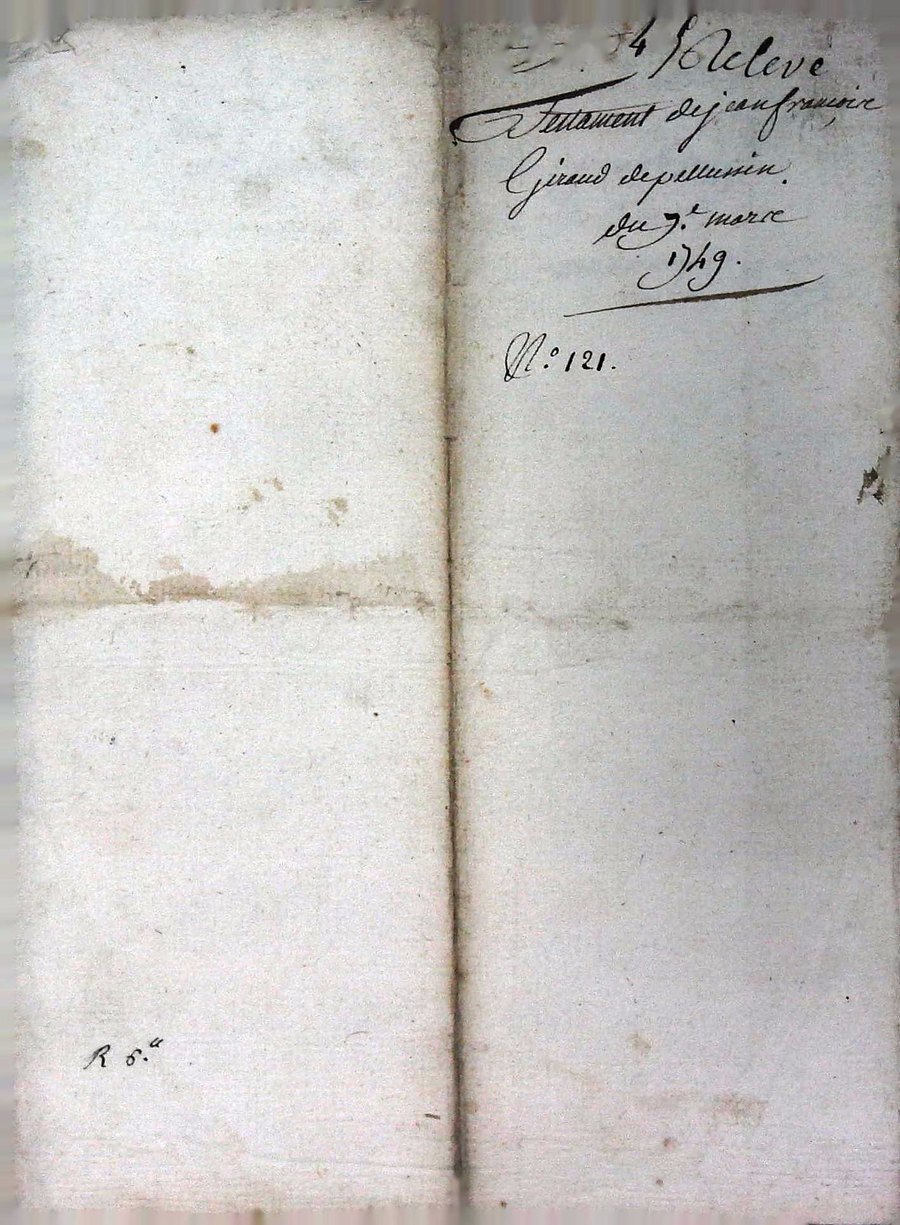 4 Relevé
Testament de jean francoix
Giraud de pellussin.
du 7.e marce
1749.
N.o 121.
R 6.a